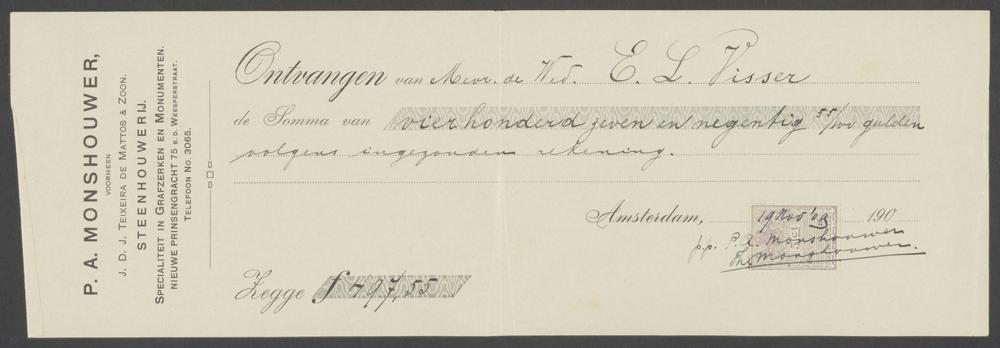 P. A. MONSHOUWER,
VOORHEEN
J. D. J. TEIXEIRA DE MATTOS & ZOON.
STEENHOUWERIJ.
SPECIALITEIT IN GRAFZERKEN EN MONUMENTEN.
NIEUWE PRINSENGRACHT 75 B. D. WEESPERSTRAAT.
TELEFOON No. 3065.
Ontvangen van Mevr. de Wed. E. L. Visser
de Somma van vier honderd zeven en negentig 55/100 gulden
volgens ingezonden rekening.
Amsterdam, 19 Nov '09 190
p.p. P. A. Monshouwer
Th. Monshouwer.
Zegge f 497,55